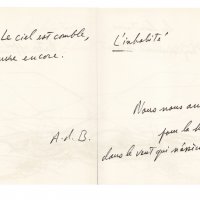 Le ciel est comble,
encore.
A. d. B.
L'inhabité
Nous nous
pour la
dans le vent qui